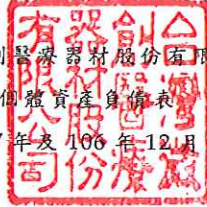 創醫療器材股份有限
個體資產負債表
年及 106 年 12 月
台灣微
創醫療
器材股份
有限公司